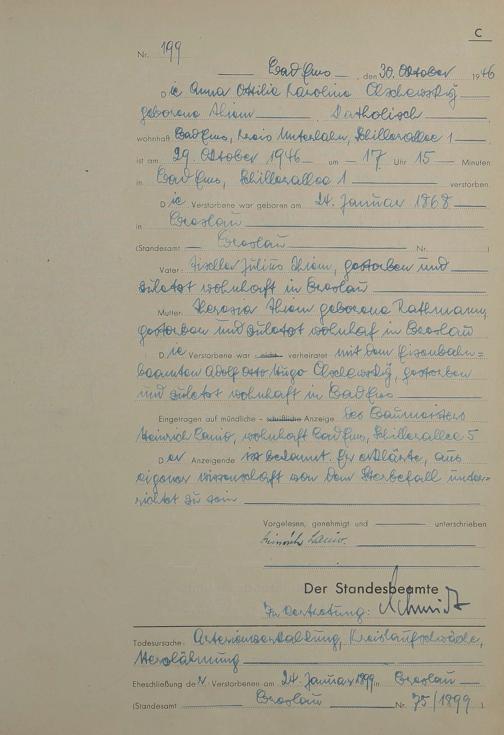 C
Nr. 199
Bad Ems, den 30. Oktober 1946
Die Anna Ottilie Karoline Olschewsky
geborene Thiem Katholisch
wohnhaft Bad Ems, Kreis Unterlahn, Schillerallee 1
ist am 29. Oktober 1946 um 17 Uhr 15 Minuten
in Bad Ems, Schillerallee 1 verstorben.
Die Verstorbene war geboren am 24. Januar 1868
in Breslau
(Standesamt Breslau Nr. )
Vater: Tischler Julius Thiem, gestorben und
zuletzt wohnhaft in Breslau
Mutter: Theresia Thiem geborene Rathmann,
gestorben und zuletzt wohnhaf in Breslau
Die Verstorbene war nicht verheiratet mit dem Eisenbahn=
beamten Adolf Otto Hugo Olschewsky, gestorben
und zuletzt wohnhaft in Bad Ems
Eingetragen auf mündliche – schriftliche Anzeige des Baumeisters
Heinrich wohnhaft Bad Ems, Schillerallee 5
Der Anzeigende ist bekannt. Er erklärte, aus
eigener Wissenschaft von dem Sterbefall unter=
richtet zu sein
Vorgelesen, genehmigt und unterschrieben
Heinrich
Der Standesbeamte
In Vertretung: Schmidt
Todesursache: Arterienverkalkung, Kreislaufschwäche,
Herzlähmung
Eheschließung der Verstorbenen am 24. Januar 1899 in Breslau
(Standesamt Breslau Nr. 75/1899 )